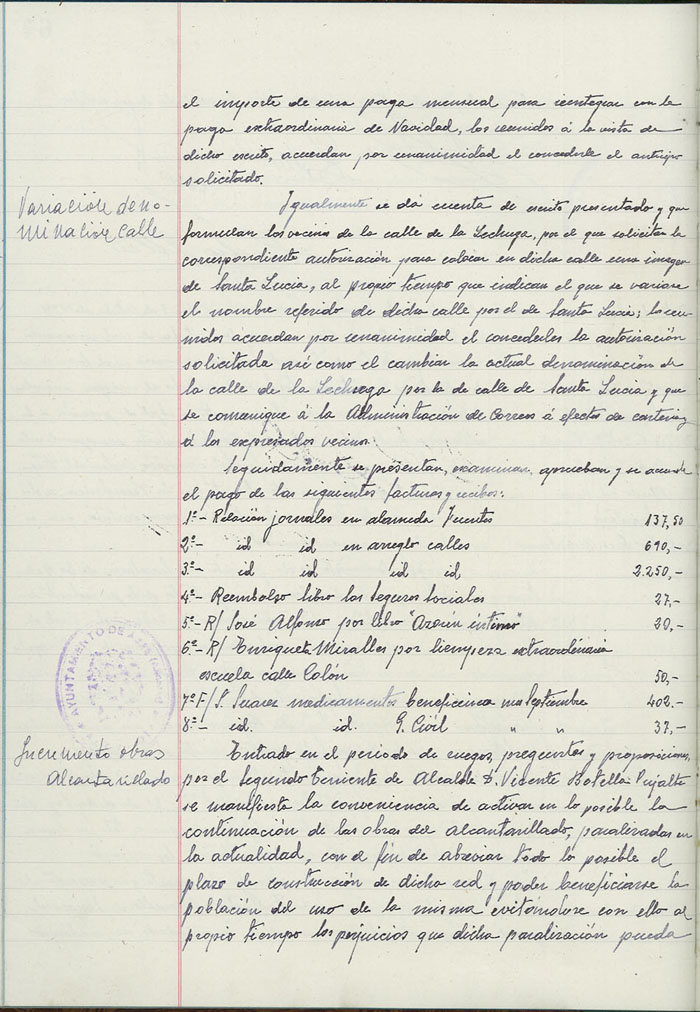 el importe de una paga mensual para reintegrar con la
paga extraordinaria de Navidad, los reunidos á la vista de
dicho escrito, acuerdan por unanimidad el concederle el anticipo
solicitado.
Variación deno-
minación calle
Igualmente se dá cuenta de escrito presentado y que
formulan los vecinos de la calle de la Lechuga, por el que solicitan la
correspondiente autorización para colocar en dicha calle una imagen
de Santa Lucia, al propio tiempo que indican el que se variase
el nombre referido de dicha calle por el de Santa Lucia; los reu-
nidos acuerdan por unanimidad el concederles la autorización
solicitada asi como el cambiar la actual denominación de
la calle de la Lechuga por la de calle de Santa Lucia y que
se comunique á la Administración de Correos á efectos de cartería y
á los expresados vecinos.
Seguidamente se presentan, examinan, aprueban y se acuerda
el pago de las siguientes facturas y recibos:
1º- Relación jornales en alameda Fuentes 137,50
2º- id id en arreglo calles 690,-
3º- id id id id 2.250,-
4º- Reembolso libro los Seguros Sociales 27,-
5º- R/ José Alfonso por libro "Azorin íntimo" 20,-
6º- R/ Enriqueta Miralles por limpieza extraordinaria
escuela calle Colón 50,-
7º F/ S. Suarez medicamentos beneficencia mes Septiembre 402.-
8º- id. id. G. Civil " " 37,-
AYUNTAMIENTO DE
Incremento obras
Alcantarillado
Entrado en el periodo de ruegos, preguntas y proposiciones,
por el Segundo Teniente de Alcalde D. Vicente Botella Pujalte
se manifiesta la conveniencia de activar en lo posible la
continuación de las obras del alcantarillado, paralizadas en
la actualidad, con el fin de abreviar todo lo posible el
plazo de construcción de dicha red y poder beneficiarse la
población del uso de la misma evitándose con ello al
propio tiempo los perjuicios que dicha paralización pueda